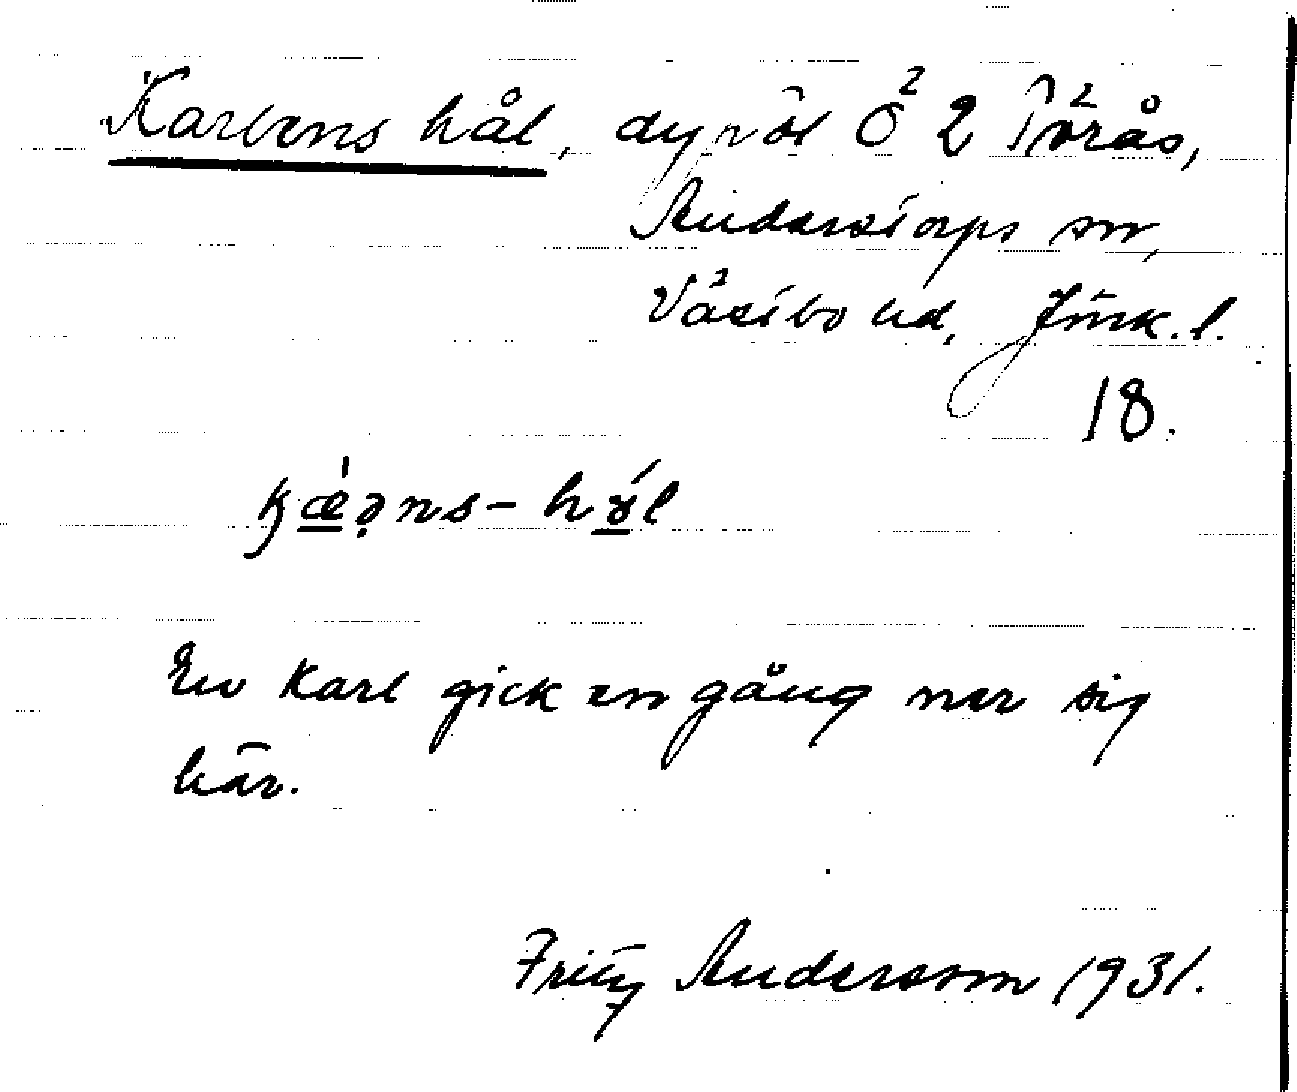 Karlens hål, dypöl Ö 2 Törås,
Anderstorps sn,
Västbo hd, Jönk. l.
18.
En karl gick en gång ner sig
här.
Fritz Andersson 1931.